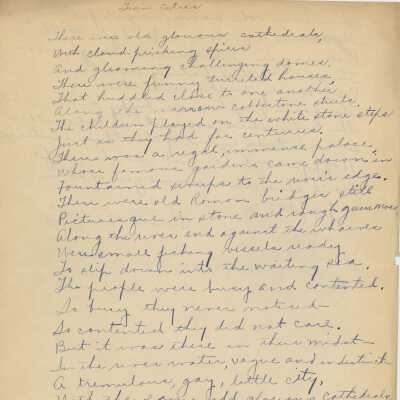 Twin Cities
There was old glorious cathedrals,
With cloud-piercing spires
And gleaming challenging domes.
There were funny turreted houses,
That huddled close to one another
Along the narrow cobblestone streets.
The children played on the white stone steps
Just as they had for centuries.
There was a regal, immense palace,
Whose famous gardens came down in
Fountained steps to the river's edge.
There were old Roman bridges still
Picturesque in stone and rough
Along the river and against the wharves
Were small fishing vessels ready
To slip down into the waiting sea.
The people were busy and contented.
So busy they never noticed
So contented they did not care.
But it was there in their midst
In the river water, vague and indistinct
A tremulous, gay, little city,
With the same old glorious cathedrals